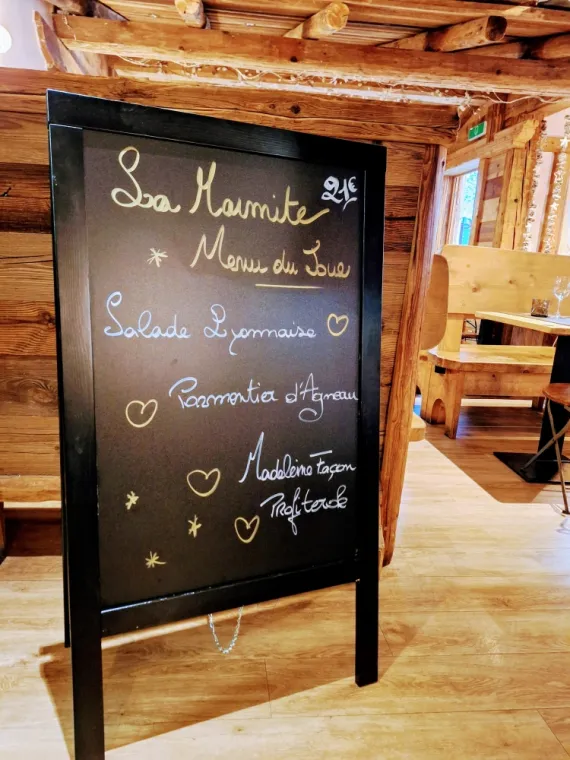 La Marmite
21€
Menu du Jour
Salade Lyonnaise
Parmentier d'Agneau
Madeleine Façon
Profiterole